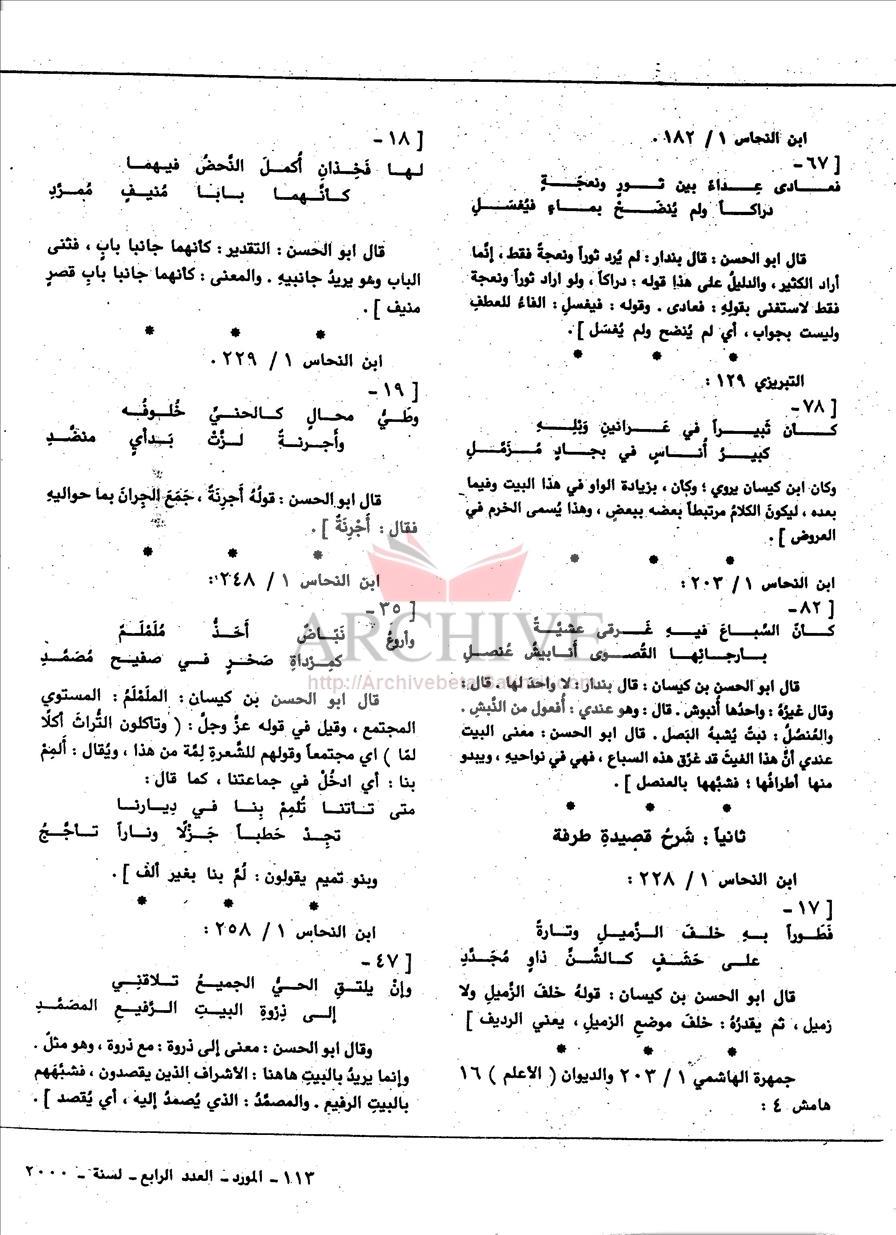 ابن النحاس ١ / ١٨٢ .
[ ٦٧ -
فعـادى عِـداءً بين ثـورٍ ونعجـةٍ
دراكـاً ولم يُنضـحْ بمـاءٍ فيُغسَـلِ
قال ابو الحسن : قال بندار : لم يُرد ثوراً ونعجةً فقط ، إنَّما
أراد الكثير ، والدليلُ على هذا قوله : دراكاً ، ولو اراد ثوراً ونعجة
فقط لاستغنى بقولهِ : فعادى . وقوله : فيغسلِ : الفاءُ للعطفِ
وليست بجواب ، أي لم يُنضح ولم يُغسَل ] .
* * *
التبريزي ١٢٩ :
[ ٧٨ -
كـأن ثَبيـراً في عَـرانينِ وَبْلِـهِ
كبيـرُ أُنـاسٍ في بجـادٍ مُـزَمَّـلِ
وكان ابن كيسان يروي ؛ وكان ، بزيادة الواو في هذا البيت وفيما
بعده ، ليكونَ الكلامُ مرتبطاً بعضه ببعضٍ ، وهذا يُسمى الخرم في
العروض ] .
* * *
ابن النحاس ١ / ٢٠٣ :
[ ٨٢ -
كـأنّ السِّبـاعَ فيـهِ غَـرقى عشيّـةً
بـأرجائِهـا القُصـوى أنـابيشُ عُنصلِ
قال ابو الحسن بن كيسان : قال بندار : لا واحدَ لها . قال :
وقال غيرُهُ : واحدُها أُنبوش . قال : وهو عندي : أُفعول من النَّبش .
والعُنصُلُ : نبتٌ يُشبهُ البَصل . قال ابو الحسن : معنى البيت
عندي أنَّ هذا الغيثَ قد غرّق هذه السباع ، فهي في نواحيهِ ، ويبدو
منها أطرافُها ؛ فشبَّهها بالعنصل ] .
* * *
ثانياً : شَرحُ قصيدةِ طرفة
ابن النحاس ١ / ٢٢٨ :
[ ١٧ -
فَطَـوراً بـهِ خلـفَ الـزَّميـلِ وتـارةً
علـى حَشَـفٍ كـالشَّـنِّ ذاوٍ مُجَـدَّدِ
قال ابو الحسن بن كيسان : قولهُ خلفَ الزَّميلِ ولا
زميل ، ثم يقدرُهُ : خلفَ موضعِ الزميلِ ، يعني الرديف ]
* * *
جمهرة الهاشمي ١ / ٢٠٣ والديوان ( الأعلم ) ١٦
هامش ٤ :
[ ١٨ -
لهـا فَخِـذانِ أُكمـلَ النَّحضُ فيهمـا
كـأنَّهمـا بـابَـا مُنيـفٍ مُمـرَّدِ
قال ابو الحسن : التقدير : كأنهما جانبا بابٍ ، فثنى
الباب وهو يريدُ جانبيهِ . والمعنى : كأنهما جانبا بابِ قصرٍ
منيف ] .
* * *
ابن النحاس ١ / ٢٢٩ .
[ ١٩ -
وطَـيُّ محـالٍ كـالحنـيِّ خُلـوفُـه
وأجـرنـةٌ لُـزَّتْ بَـدأيٍ منضَّـدِ
قال ابو الحسن : قولُهُ أجرنَةٌ ، جَمَعَ الجِرانَ بما حواليهِ
فقال : أَجْرِنَةٌ ] .
* * *
ابن النحاس ١ / ٢٤٨ :
[ ٣٥ -
وأروعُ نَبّـاضٌ أَحَـذُّ مُلَمْلَـمٌ
كمِـرْداةِ صَخـرٍ فـي صفيـحٍ مُصَمَّـدِ
قال ابو الحسن بن كيسان : الملَمْلَمُ : المستوي
المجتمع ، وقيل في قوله عزُّ وجلَّ : ( وتاكلون التُّراثَ أكلًا
لمّا ) اي مجتمعاً وقولهم للشَّعرةِ لِمَّة من هذا ، ويُقال : ألمِمْ
بنا : أي ادخُلْ في جماعتنا ، كما قال :
متى تـأتنـا تُلمِمْ بِنـا فـي دِيـارنـا
تجِـدْ حَطبـاً جَـزْلًا ونـاراً تـأجَّـجُ
وبنو تميم يقولون : لُمَّ بنا بغير ألف ] .
* * *
ابن النحاس ١ / ٢٥٨ :
[ ٤٧ -
وإنْ يلتـقِ الحـيُّ الجميـعُ تـلاقنِـي
إلـى ذِرْوةِ البيـتِ الـرَّفيـعِ المصَمَّـدِ
وقال ابو الحسن : معنى إلى ذروة : مع ذروة ، وهو مثلٌ .
وإنما يريدُ بالبيتِ هاهنا : الأشراف الذين يقصدون ، فشبَّهَهم
بالبيتِ الرفيع . والمصمَّدُ : الذي يُصمدُ إليه ، أي يُقصد ] .
١١٣ - المورد - العدد الرابع - لسنة - ٢٠٠٠
ARCHIVE